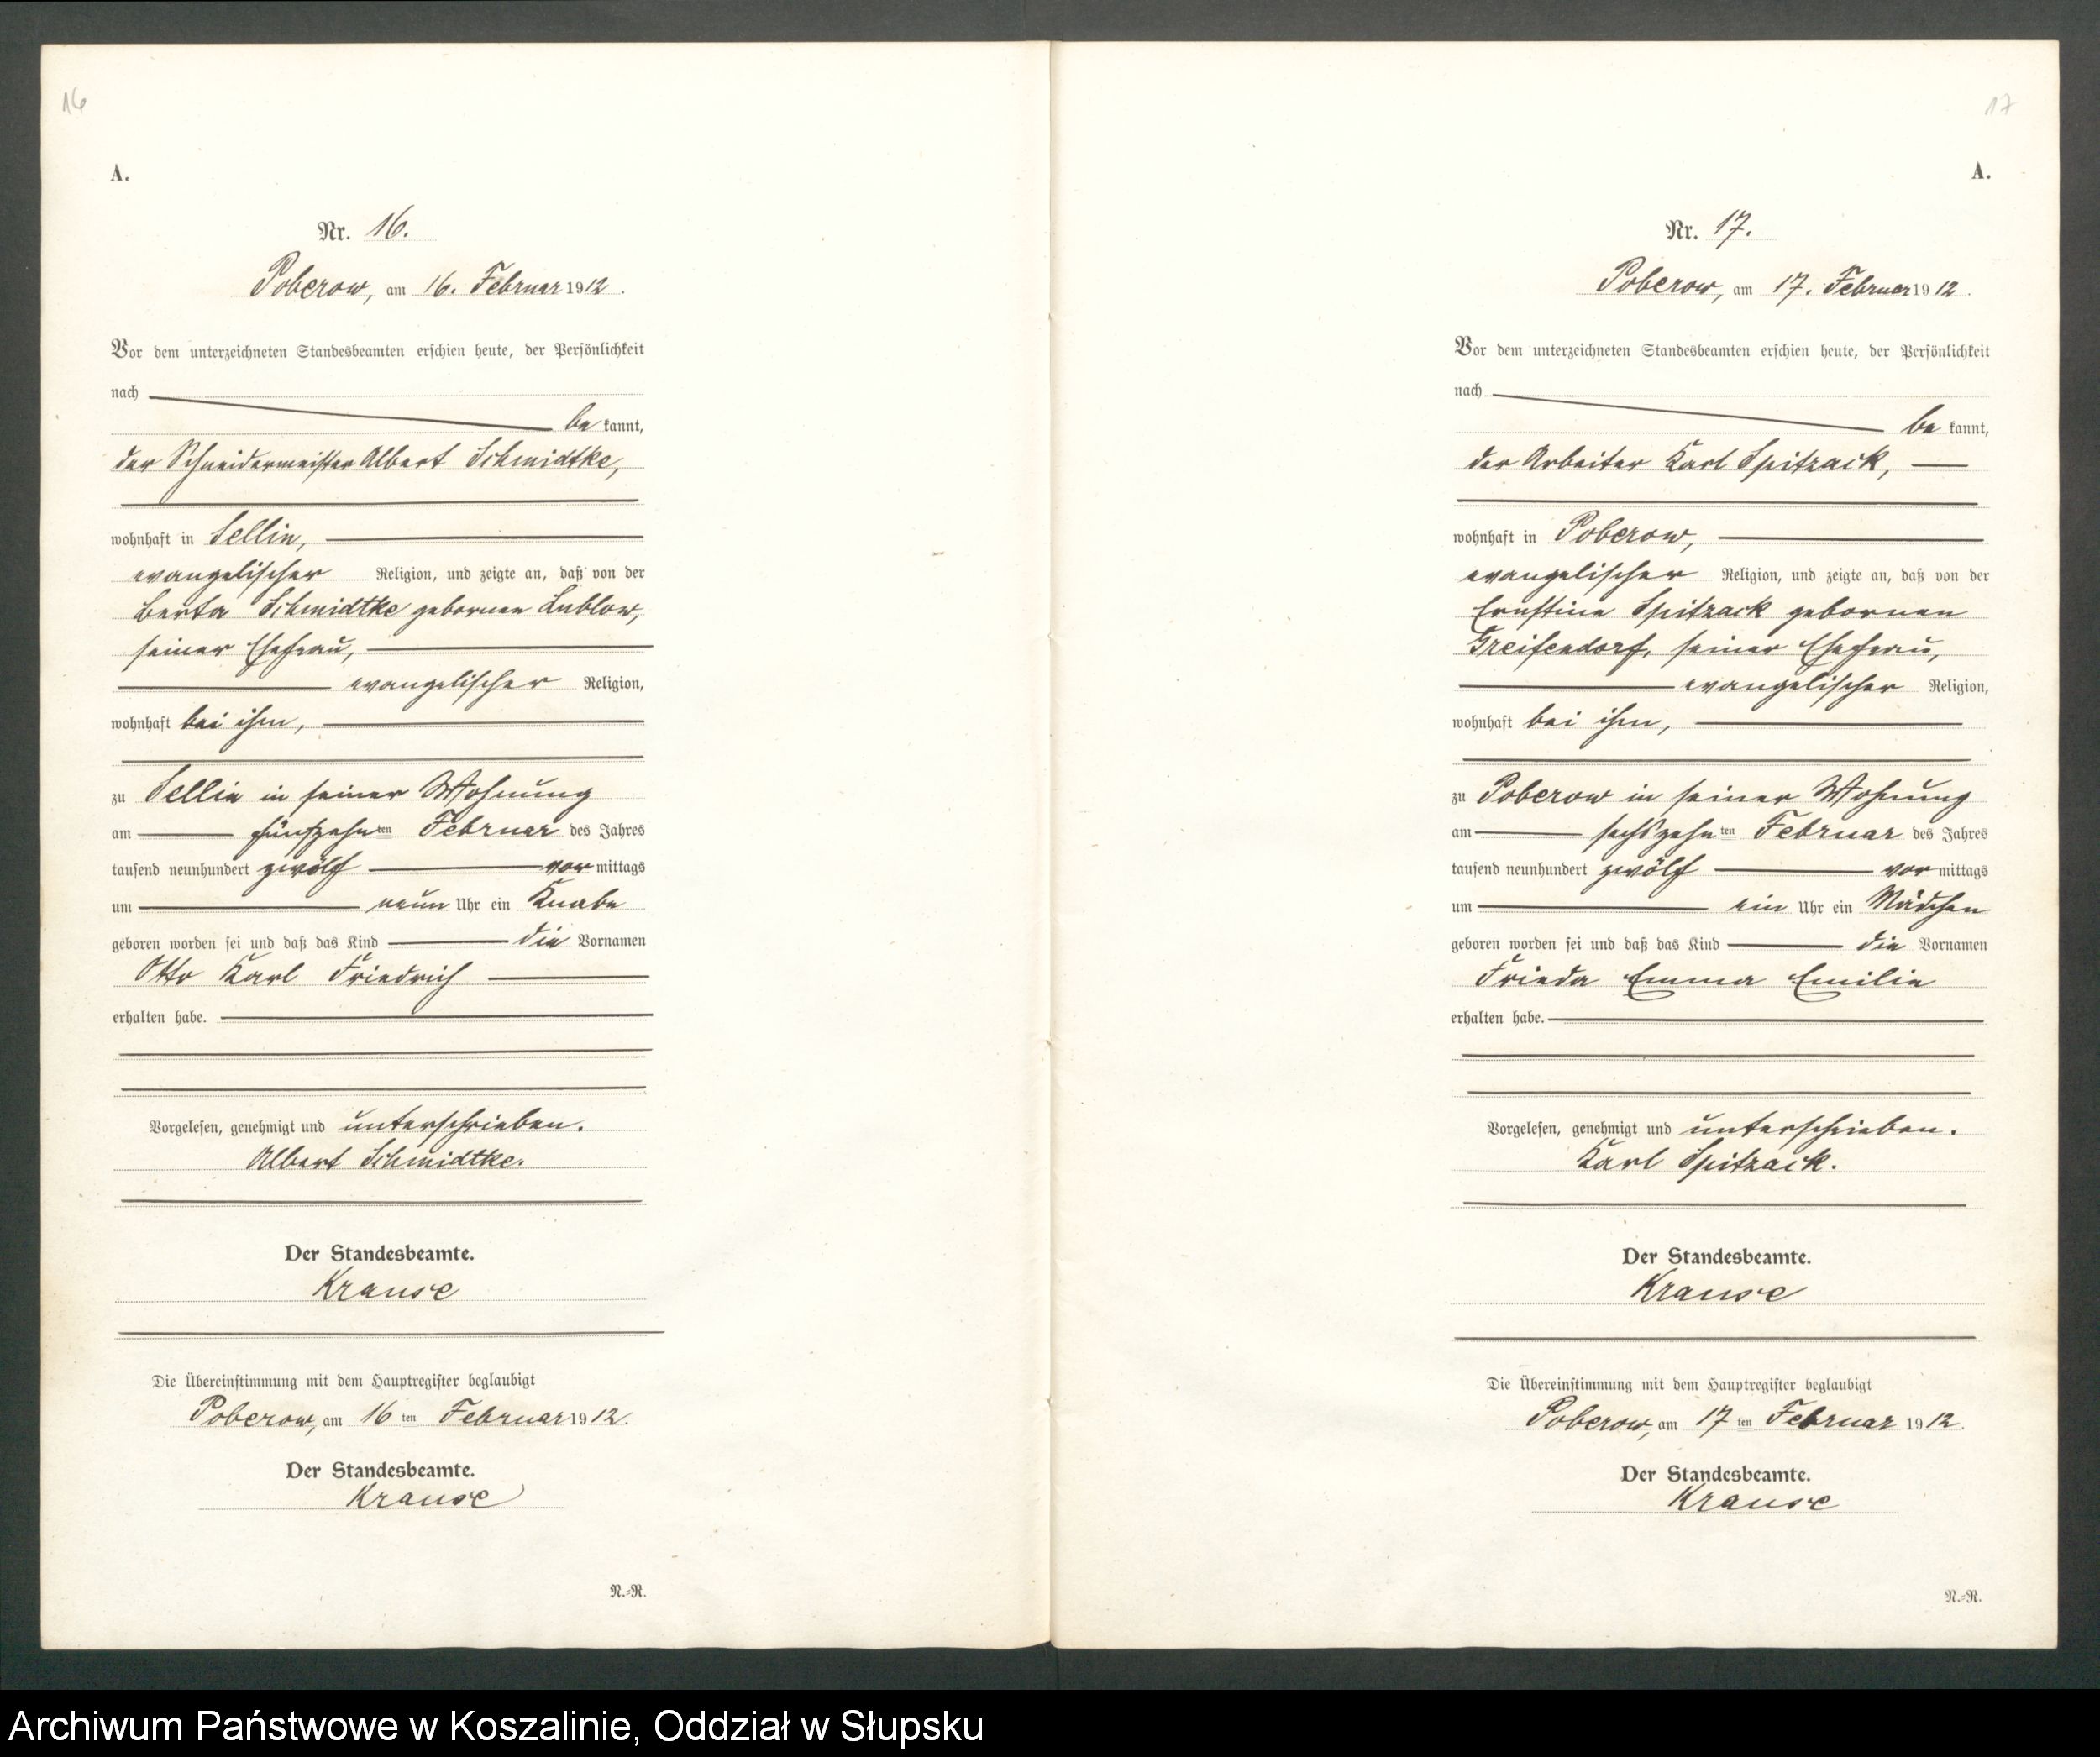 16
A.
Nr. 16.
Poberow, am 16. Februar 1912.
Vor dem unterzeichneten Standesbeamten erschien heute, der Persönlichkeit
nach
be kannt,
der Schneidermeister Albert Schmidtke,
wohnhaft in Sellin,
evangelischer Religion, und zeigte an, daß von der
Berta Schmidtke gebornen Lublow,
seiner Ehefrau,
evangelischer Religion,
wohnhaft bei ihm,
zu Sellin in seiner Wohnung
am fünfzehn ten Februar des Jahres
tausend neunhundert zwölf vor mittags
um neun Uhr ein Knabe
geboren worden sei und daß das Kind die Vornamen
Otto Karl Friedrich
erhalten habe.
Vorgelesen, genehmigt und unterschrieben.
Albert Schmidtke.
Der Standesbeamte.
Krause
Die Übereinstimmung mit dem Hauptregister beglaubigt
Poberow, am 16 ten Februar 1912.
Der Standesbeamte.
Krause
N.=R.
17
A.
Nr. 17.
Poberow, am 17. Februar 1912.
Vor dem unterzeichneten Standesbeamten erschien heute, der Persönlichkeit
nach
be kannt,
der Arbeiter Karl Spitzack,
wohnhaft in Poberow,
evangelischer Religion, und zeigte an, daß von der
Ernstine Spitzack gebornen
Greifendorf, seiner Ehefrau,
evangelischer Religion,
wohnhaft bei ihm,
zu Poberow in seiner Wohnung
am sechszehn ten Februar des Jahres
tausend neunhundert zwölf vor mittags
um ein Uhr ein Mädchen
geboren worden sei und daß das Kind die Vornamen
Frieda Emma Emilie
erhalten habe.
Vorgelesen, genehmigt und unterschrieben.
Karl Spitzack.
Der Standesbeamte.
Krause
Die Übereinstimmung mit dem Hauptregister beglaubigt
Poberow, am 17 ten Februar 1912.
Der Standesbeamte.
Krause
N.=R.
Archiwum Państwowe w Koszalinie, Oddział w Słupsku